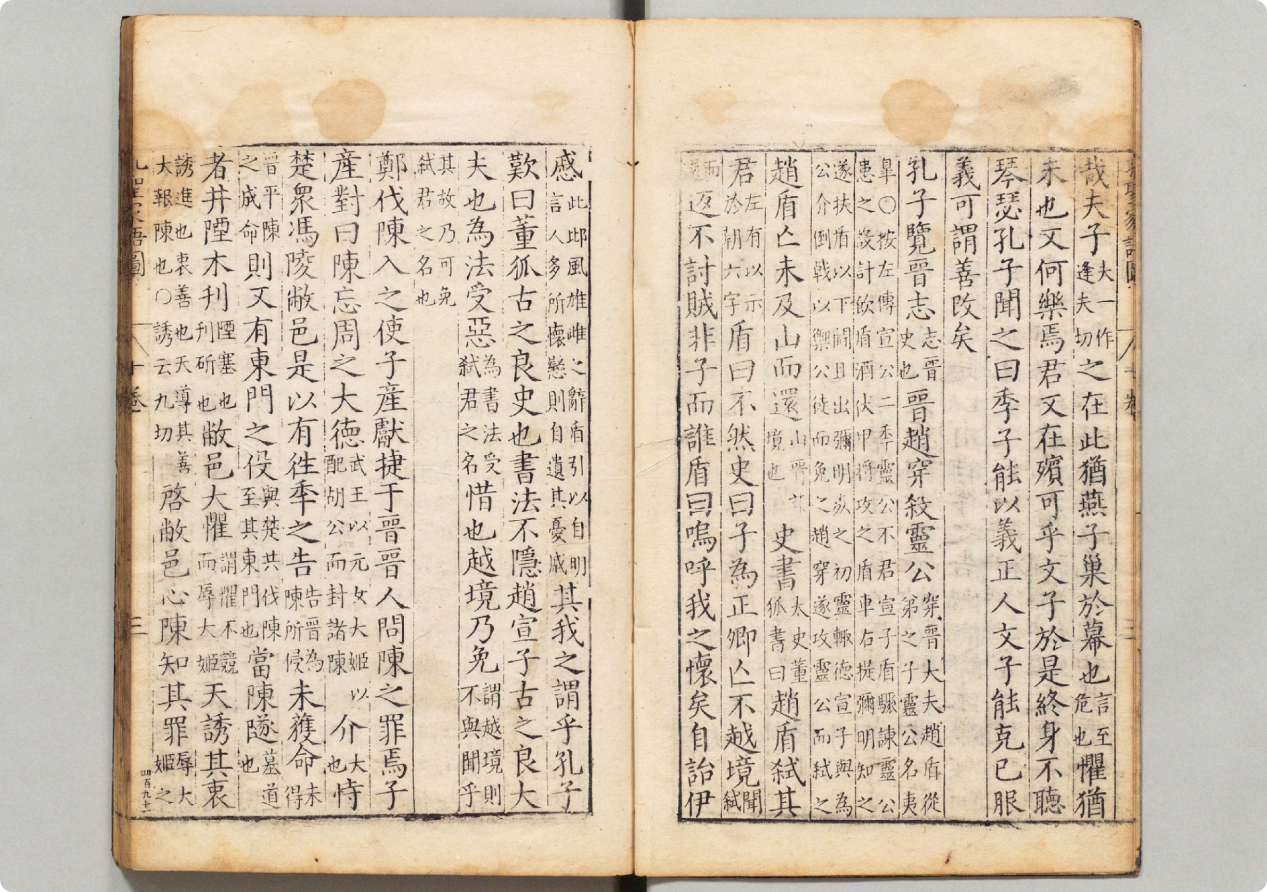 哉夫子夫一作逢夫切之在此猶燕子巢於幕也言至危也懼猶
未也又何樂焉君又在殯可乎文子於是終身不聽
琴瑟孔子聞之曰季子能以義正人文子能克己服
義可謂善改矣
孔子覽晉志志晉史也晉趙穿殺靈公穿晉大夫趙盾從弟之子靈公名夷
皐〇按左傳宣公二年靈公不君宣子盾驟諫靈公患之設計飲盾酒伏甲將攻之盾車右提彌明知之
遂扶盾以下鬬且出彌明死之初靈輒德宣子與為公介倒戟以禦公徒而免之趙穿遂攻靈公而弑之
趙盾亡未及山而還山晉之境也史書太史董狐書曰趙盾弑其
君左有以示於朝六字盾曰不然史曰子為正卿亡不越境聞弑
而還返不討賊非子而誰盾曰嗚呼我之懷矣自詒伊
慼此邶風雄雉之辭盾引以自明言人多所懷戀則自遺其憂慼其我之謂乎孔子
歎曰董狐古之良史也書法不隱趙宣子古之良大
夫也為法受惡為書法受弑君之名惜也越境乃免謂越境則不與聞乎
其故乃可免弑君之名也
鄭伐陳入之使子產獻捷于晉晉人問陳之罪焉子
產對曰陳忘周之大德武王以元女大姬以配胡公而封諸陳介大也恃
楚衆馮陵敝邑是以有徃年之告告晉為陳所侵未獲命未得
晉平陳之成命則又有東門之伇與楚共伐陳至其東門也當陳隧墓道也
者井陻木刋陻塞也刋斫也敝邑大懼謂懼不競而辱大姬天誘其衷
誘進也衷善也天導其善大報陳也〇誘云九切啓敝邑心陳知其罪辱大姬之
孔聖家語圖
八
十卷
三
四百九十二